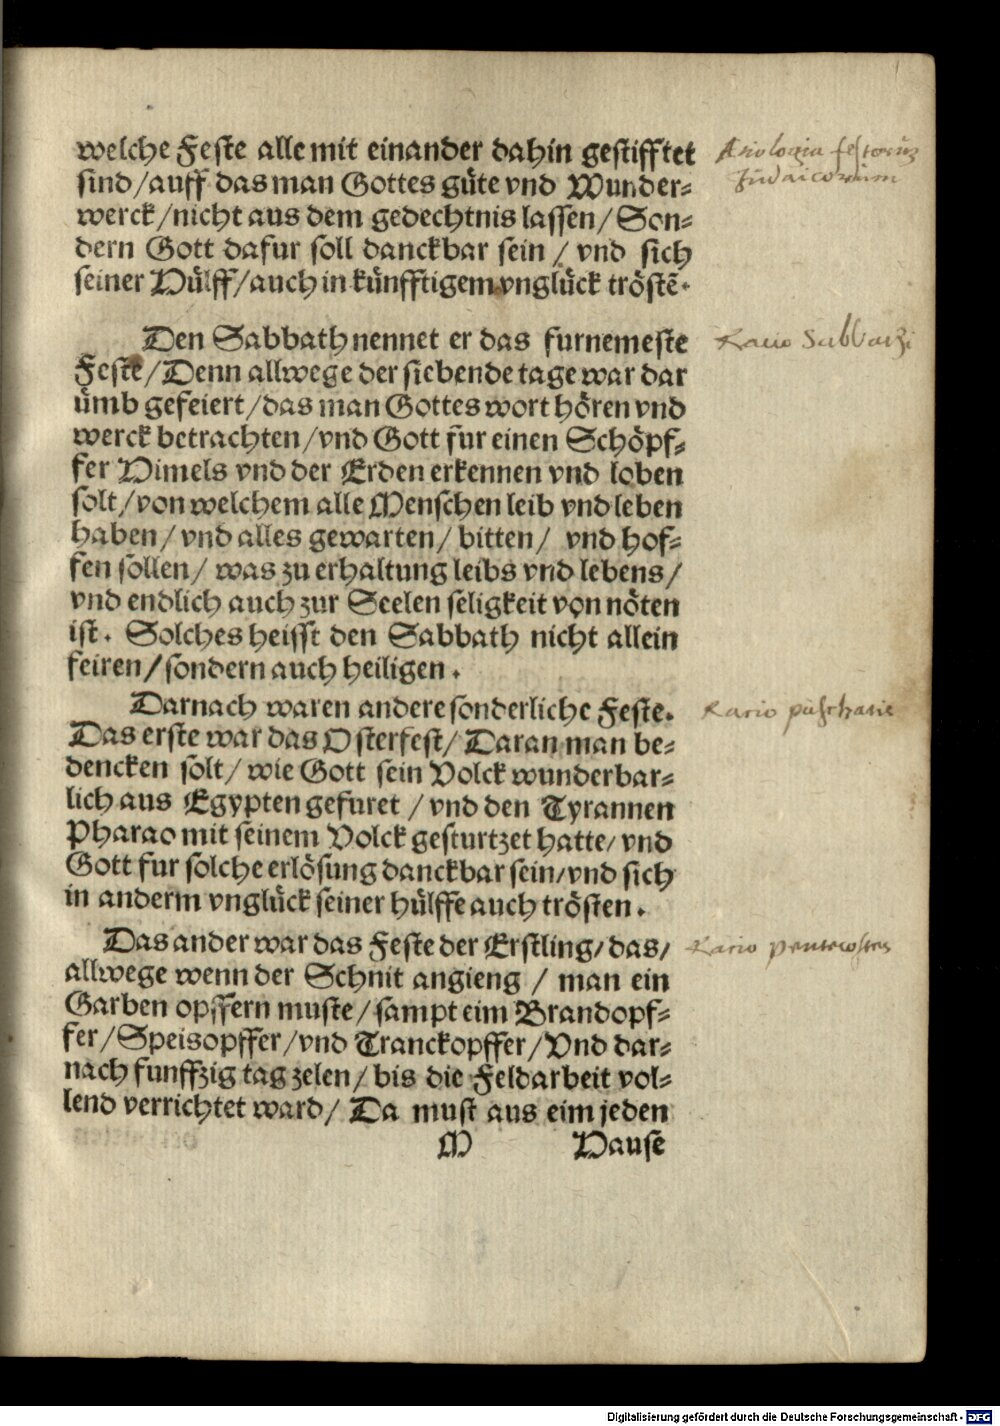 welche Feste alle mit einander dahin gestifftet
sind/auff das man Gottes güte vnd Wunder-
werck/nicht aus dem gedechtnis lassen/Son-
dern Gott dafur soll danckbar sein/vnd sich
seiner Hülff/auch in künfftigem vnglück tröstẽ.
Aitiologia festorum
Judaicorum
Den Sabbath nennet er das furnemeste
Feste/Denn allwege der siebende tage war dar
ümb gefeiert/das man Gottes wort hören vnd
werck betrachten/vnd Gott für einen Schöpf-
fer Himels vnd der Erden erkennen vnd loben
solt/von welchem alle Menschen leib vnd leben
haben/vnd alles gewarten/bitten/ vnd hof-
fen sollen/was zu erhaltung leibs vnd lebens/
vnd endlich auch zur Seelen seligkeit von nöten
ist. Solches heisst den Sabbath nicht allein
feiren/sondern auch heiligen.
Racio Sabbathi
Darnach waren andere sonderliche Feste.
Das erste war das Osterfest/Daran man be-
dencken solt/wie Gott sein Volck wunderbar-
lich aus Egypten gefuret/vnd den Tyrannen
Pharao mit seinem Volck gesturtzet hatte/vnd
Gott fur solche erlösung danckbar sein/vnd sich
in anderm vnglück seiner hülffe auch trösten.
Racio paschatis
Das ander war das Feste der Erstling/das/
allwege wenn der Schnit angieng/man ein
Garben opffern muste/sampt eim Brandopf-
fer/Speisopffer/vnd Tranckopffer/Vnd dar-
nach funffzig tag zelen/bis die Feldarbeit vol-
lend verrichtet ward/Da must aus eim jeden
Racio pentecostes
M Hause
Digitalisierung gefördert durch die Deutsche Forschungsgemeinschaft - DFG